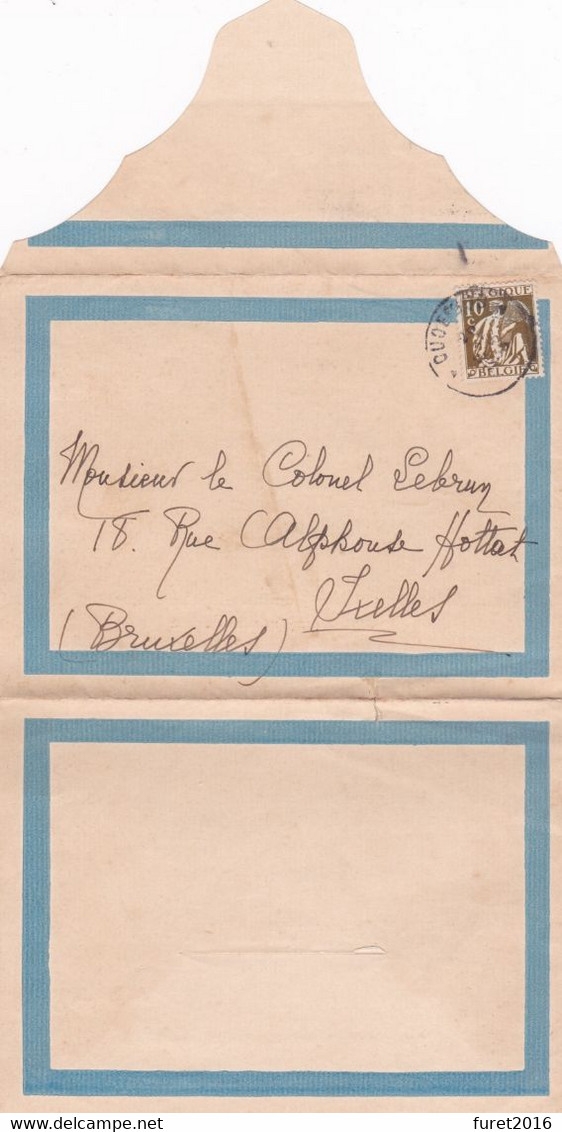 BELGIQUE
10
c
BELGIË
Monsieur le Colonel Lebrun
18. Rue Alphonse Hottat
Ixelles
(Bruxelles)
delcampe.net
furet2016